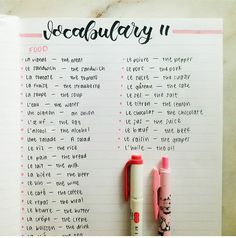 Vocabulary 11
FOOD
la viande - the meat
le sandwich - the sandwich
la tomate - the tomato
la fraise - the strawberry
la soupe - the soup
l'eau - the water
un oignon - an onion
l'œuf - the egg
l'alcool - the alcohol
une salade - a salad
le riz - the rice
le pain - the bread
le lait - the milk
la bière - the beer
le vin - the wine
le café - the coffee
le repas - the meal
le beurre - the butter
la crêpe - the crepe
la boisson - the drink
le poivre - the pepper
le porc - the pork
le sucre - the sugar
le gâteau - the cake
le sel - the salt
le citron - the lemon
le chocolat - the chocolate
le jus - the juice
le bœuf - the beef
le raisin - the grape
l'huile - the oil